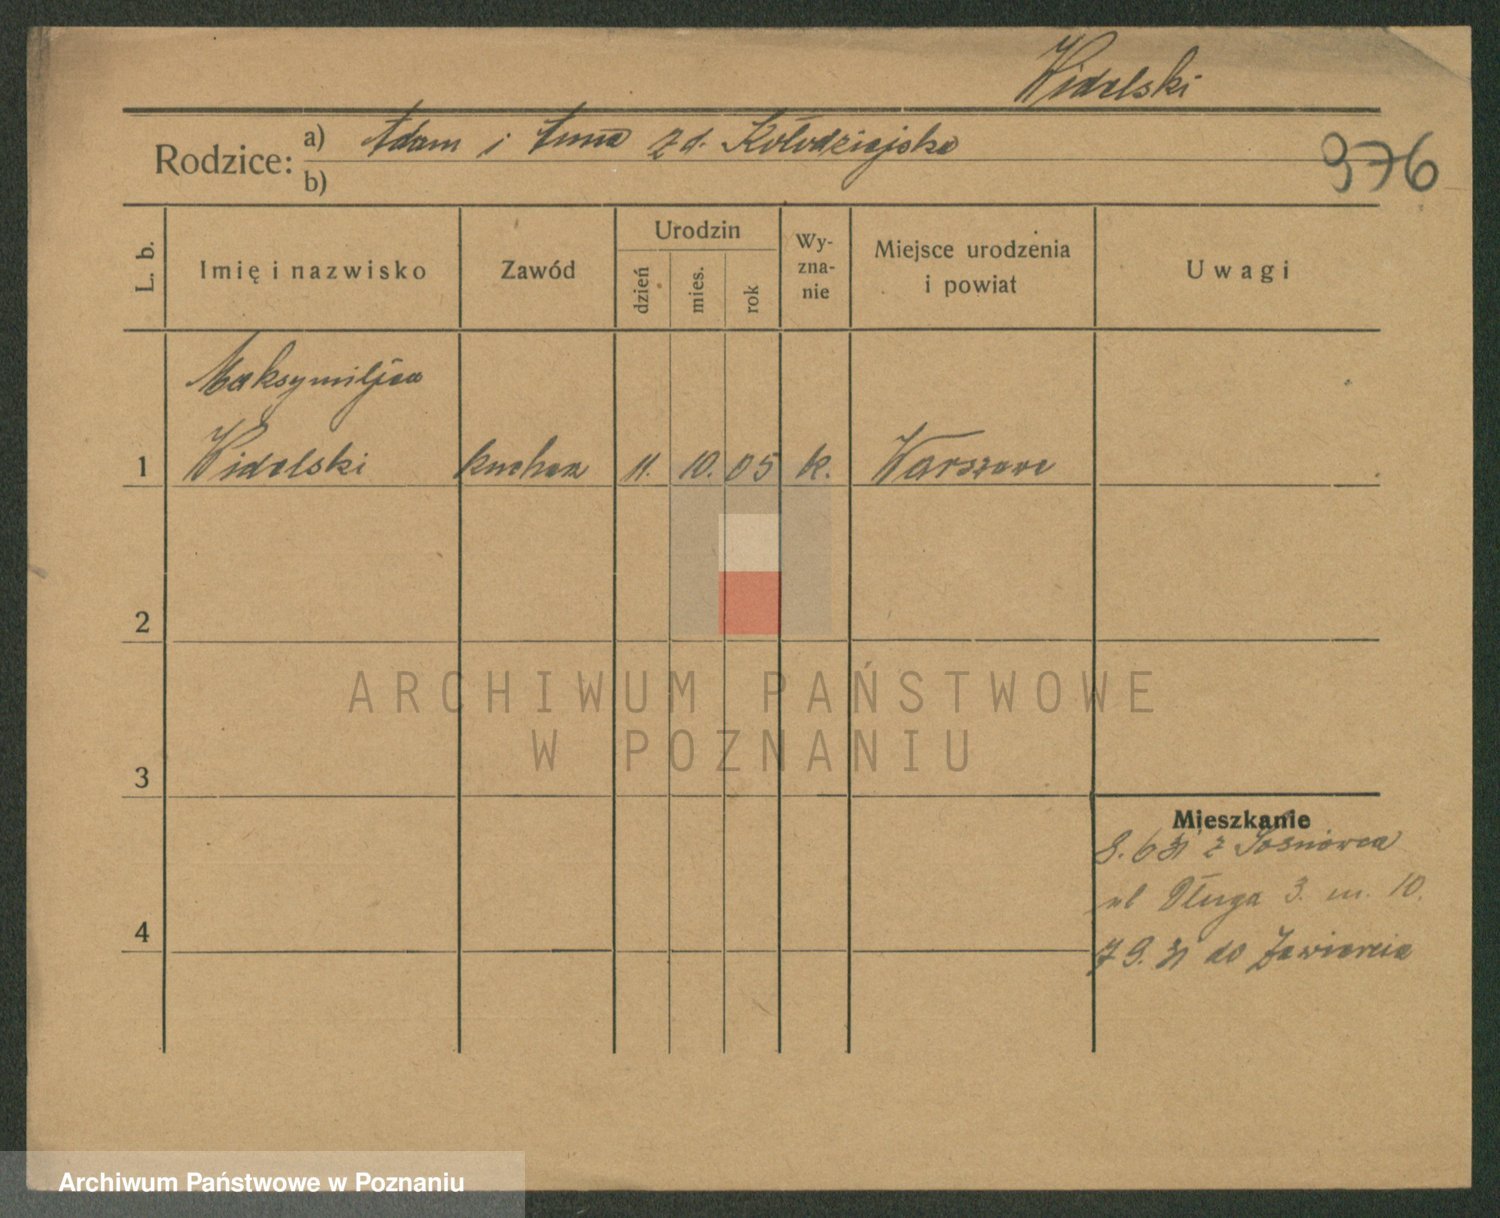 Widelski
Rodzice: a) Adam i Anna z d. Kołodziejska
b)
976
L. b.
Imię i nazwisko
Zawód
Urodzin
dzień
mies.
rok
Wy-
zna-
nie
Miejsce urodzenia
i powiat
Uwagi
Maksymiljan
1 Widelski kucharz 11. 10. 05 k. Warszawa
2
ARCHIWUM PAŃSTWOWE
W POZNANIU
3
Mieszkanie
8. 6 31 z Sosnowca
ul Długa 3. m. 10.
4
7 9. 31 do Zawiercia
Archiwum Państwowe w Poznaniu